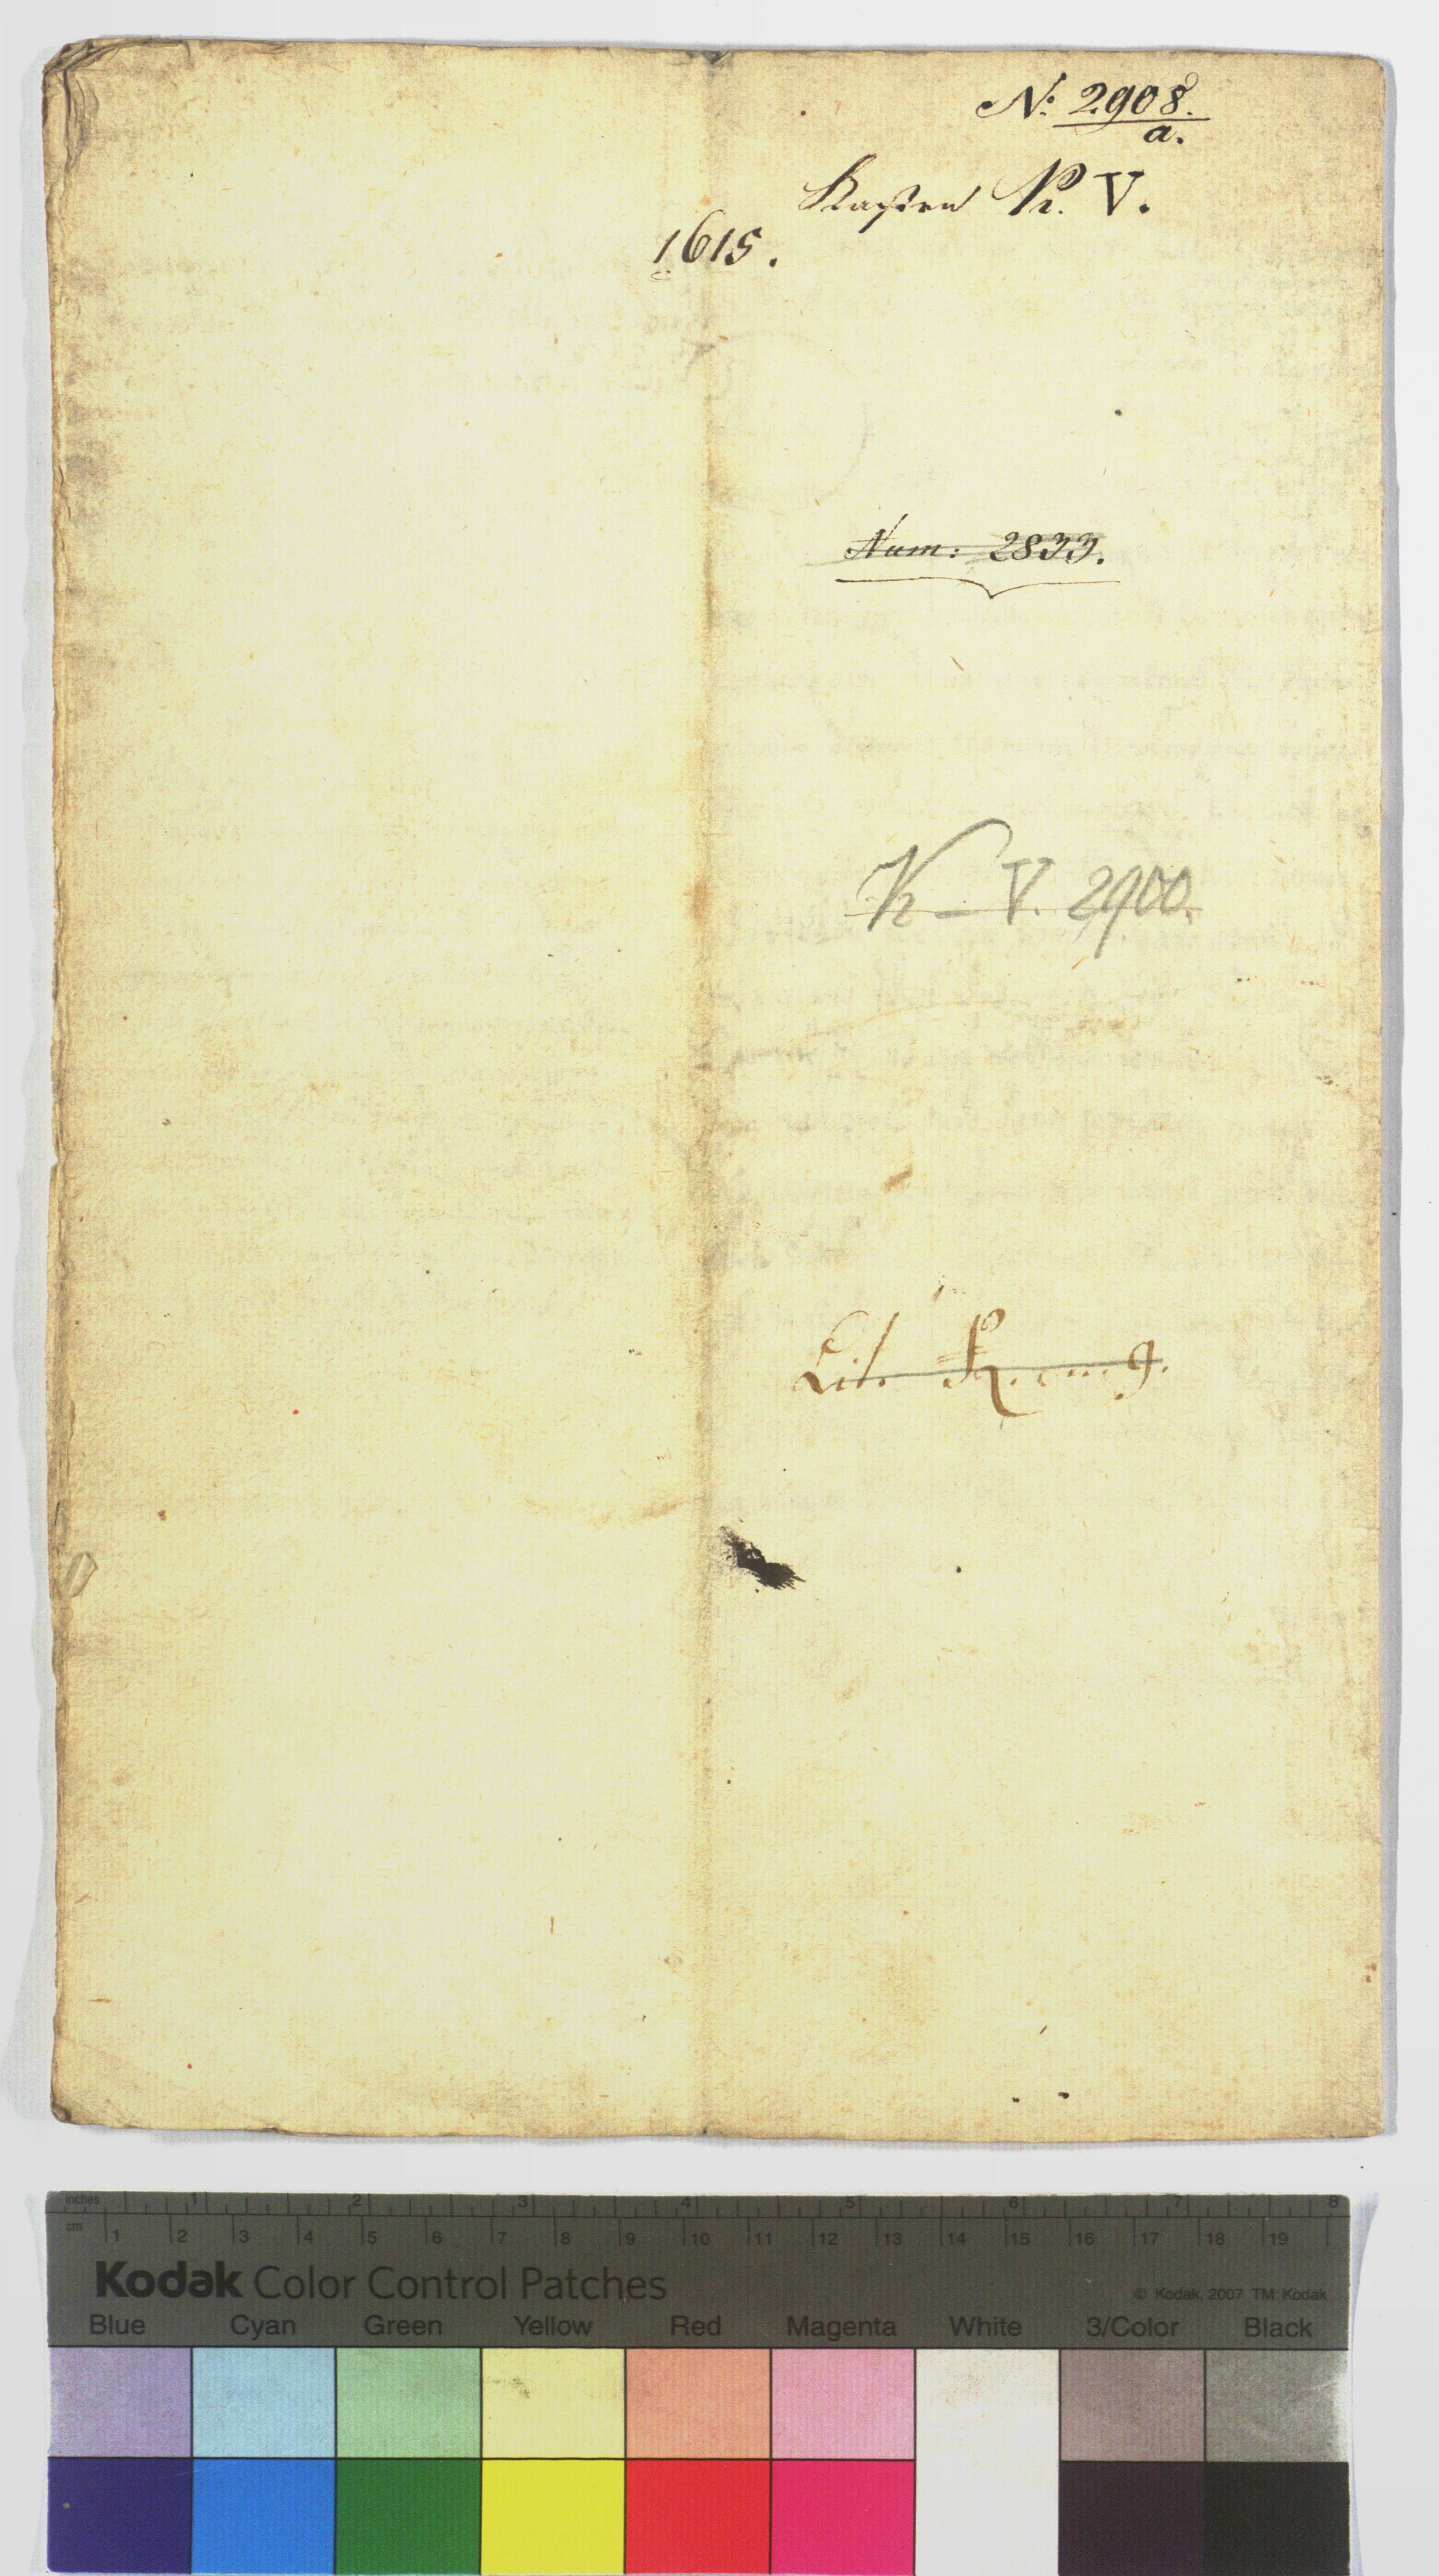 N: 2908.
a.
Kasten K. V.
1615.
Num: 2833.
K – V. 2900.
Lit.
inches 1 2 3 4 5 6 7 8
cm 1 2 3 4 5 6 7 8 9 10 11 12 13 14 15 16 17 18 19
Kodak Color Control Patches
© Kodak, 2007 TM: Kodak
Blue Cyan Green Yellow Red Magenta White 3/Color Black